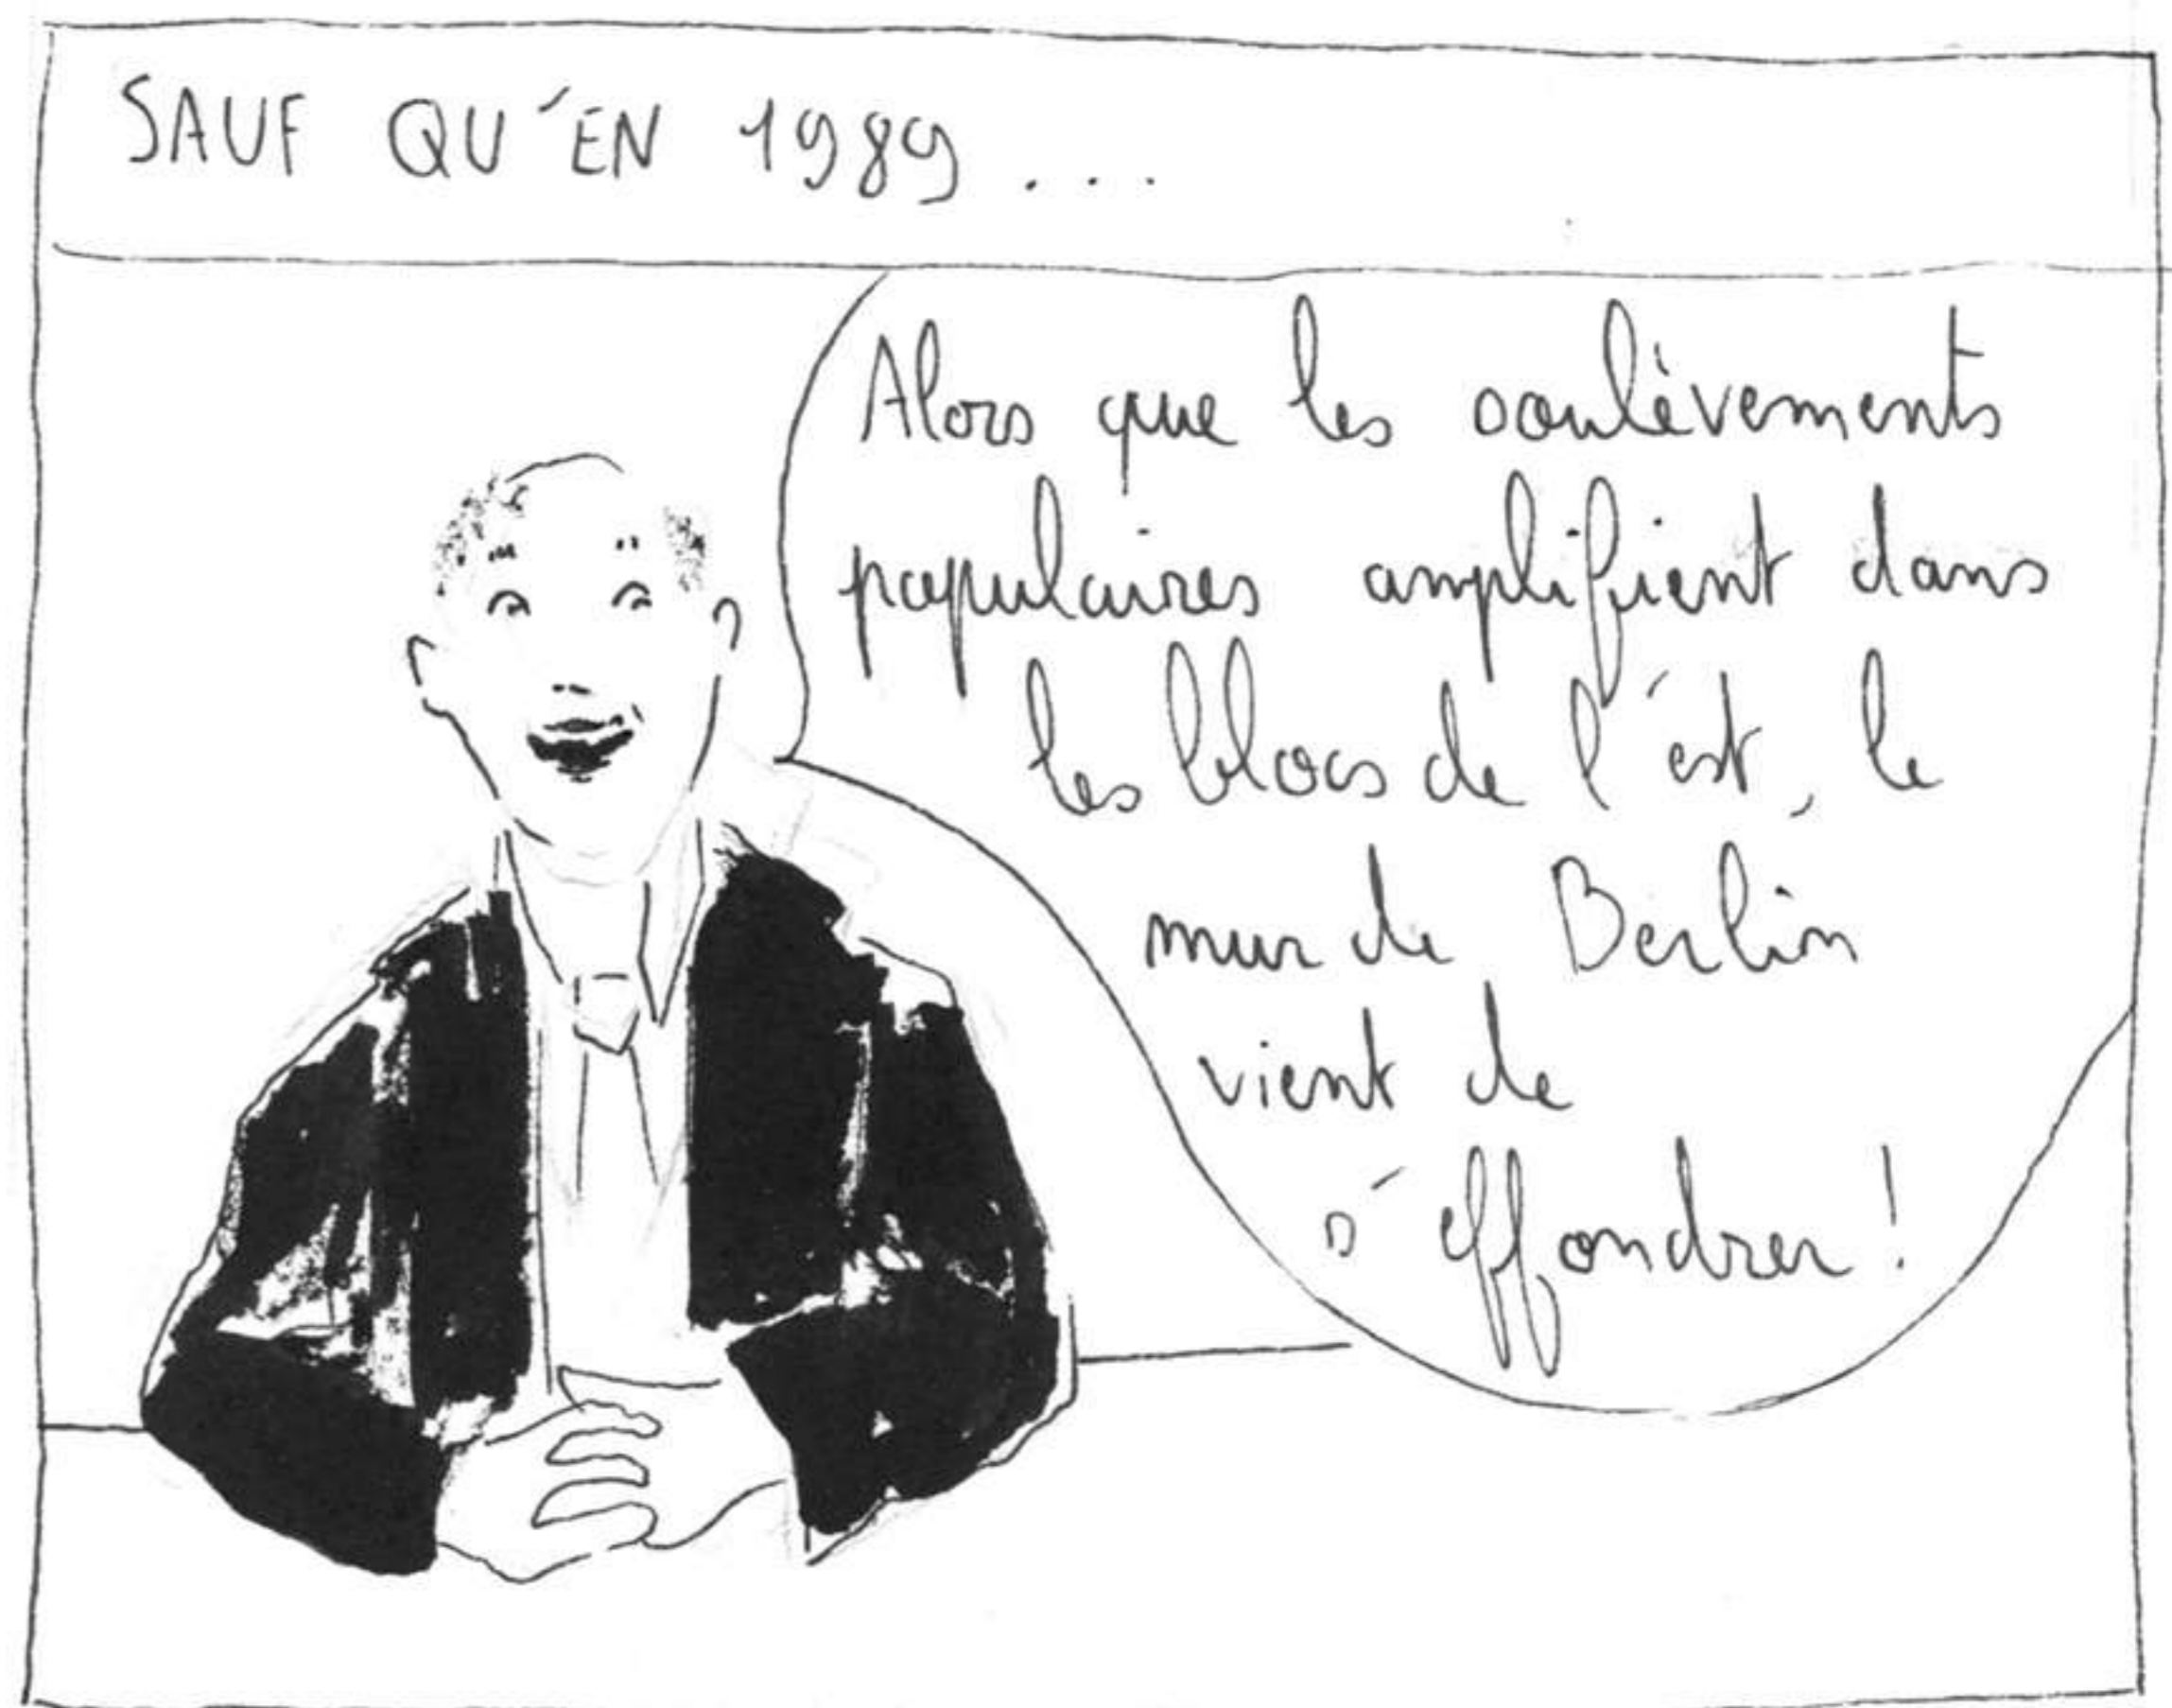 SAUF QU'EN 1989...
Alors que les soulèvements
populaires amplifient dans
les blocs de l'est, le
mur de Berlin
vient de
s'effondrer!